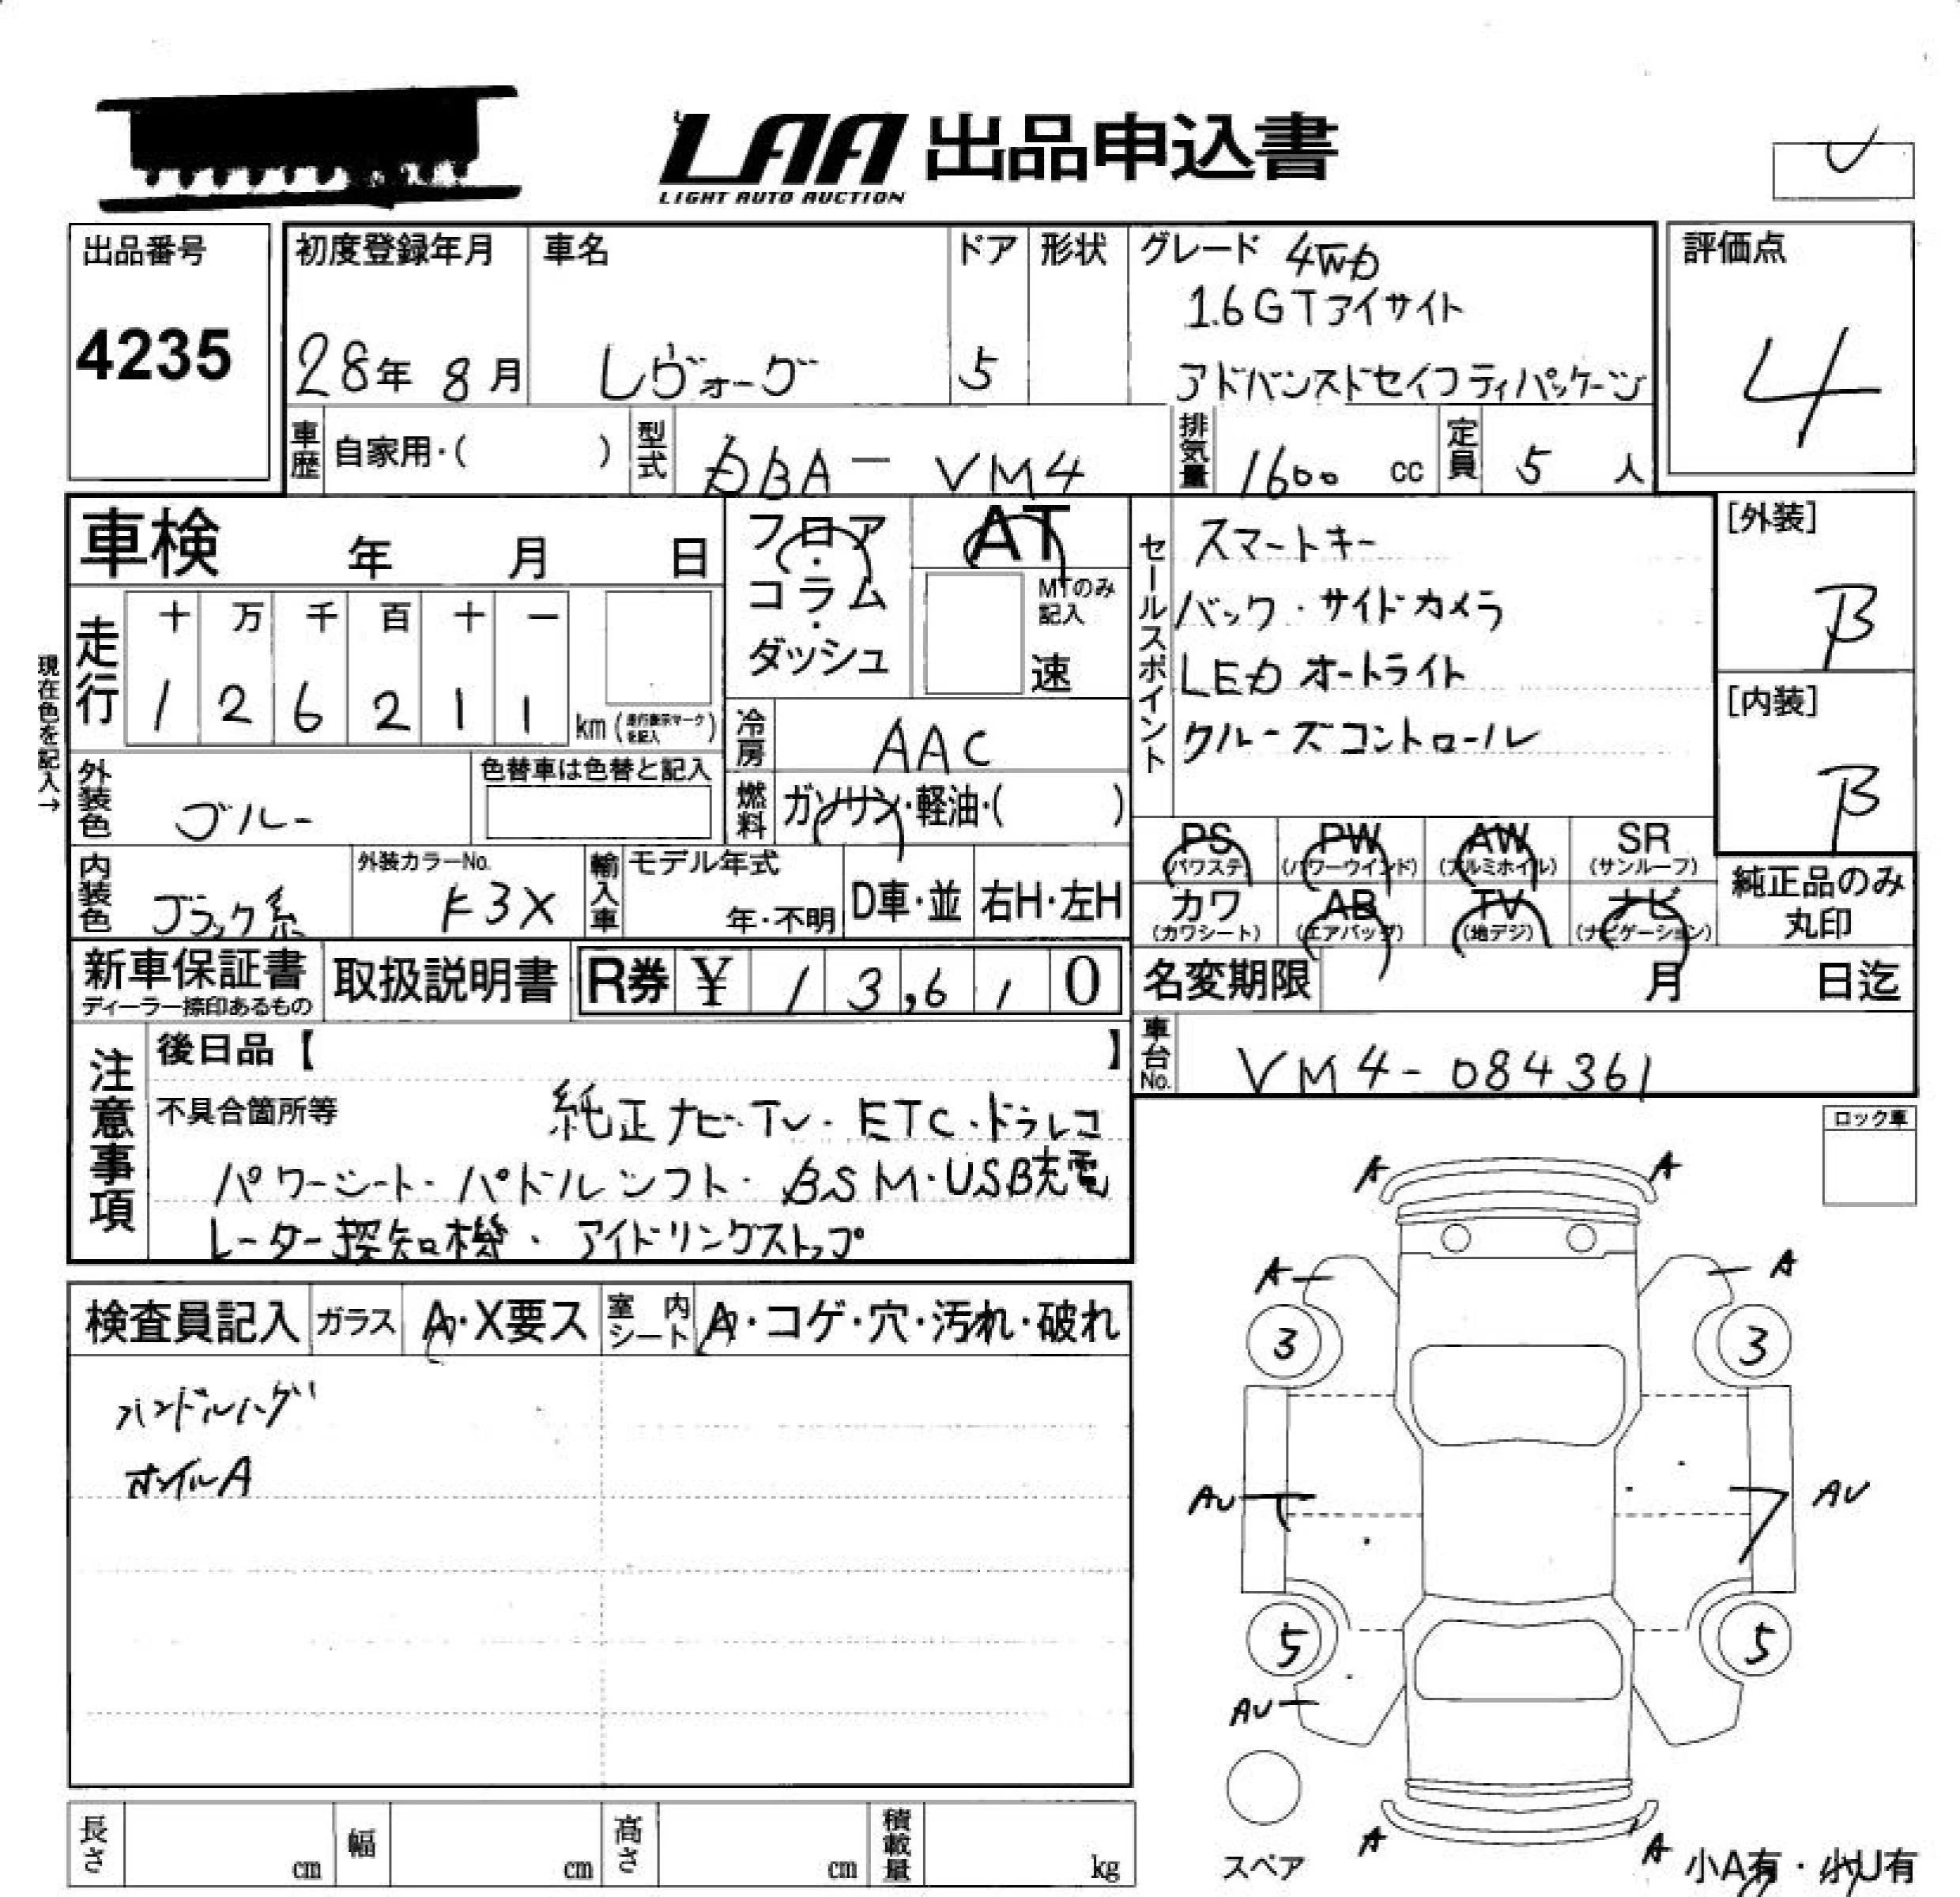 LAA 出品申込書
LIGHT AUTO AUCTION
出品番号
4235
初度登録年月
28年 8月
車名
レヴォーグ
ドア
5
形状
グレード 4WD
1.6GTアイサイト
アドバンスドセイフティパッケージ
評価点
4
車歴
自家用・( )
型式
DBA-VM4
排気量
1600 cc
定員
5 人
車検 年 月 日
フロア・コラム・ダッシュ
AT
MTのみ記入
速
セールスポイント
スマートキー
バック・サイドカメラ
LEDオートライト
クルーズコントロール
[外装]
B
[内装]
B
現在色を記入→
走行
十 万 千 百 十 一
1 2 6 2 1 1 km (走行表示マークを記入)
冷房
AAC
外装色
ブルー
色替車は色替と記入
燃料
ガソリン・軽油・( )
PS (パワステ)
PW (パワーウインド)
AW (アルミホイル)
SR (サンルーフ)
カワ (カワシート)
AB (エアバッグ)
TV (地デジ)
ナビ (ナビゲーション)
純正品のみ丸印
内装色
ブラック系
外装カラーNo.
K3X
輸入車
モデル年式
年・不明
D車・並
右H・左H
新車保証書
ディーラー捺印あるもの
取扱説明書
R券 ¥ 13,610
名変期限 月 日迄
車台No.
VM4-084361
注意事項
後日品【 】
不具合箇所等
純正ナビ・TV・ETC・ドラレコ
パワーシート・パドルシフト・BSM・USB充電
レーダー探知機・アイドリングストップ
ロック車
検査員記入
ガラス
A・X要ス
室内シート
A・コゲ・穴・汚れ・破れ
ハンドルハゲ
ホイルA
A A
A A
3 3
AU AU
5 5
AU
A A
スペア
小A有・小U有
長さ cm
幅 cm
高さ cm
積載量 kg